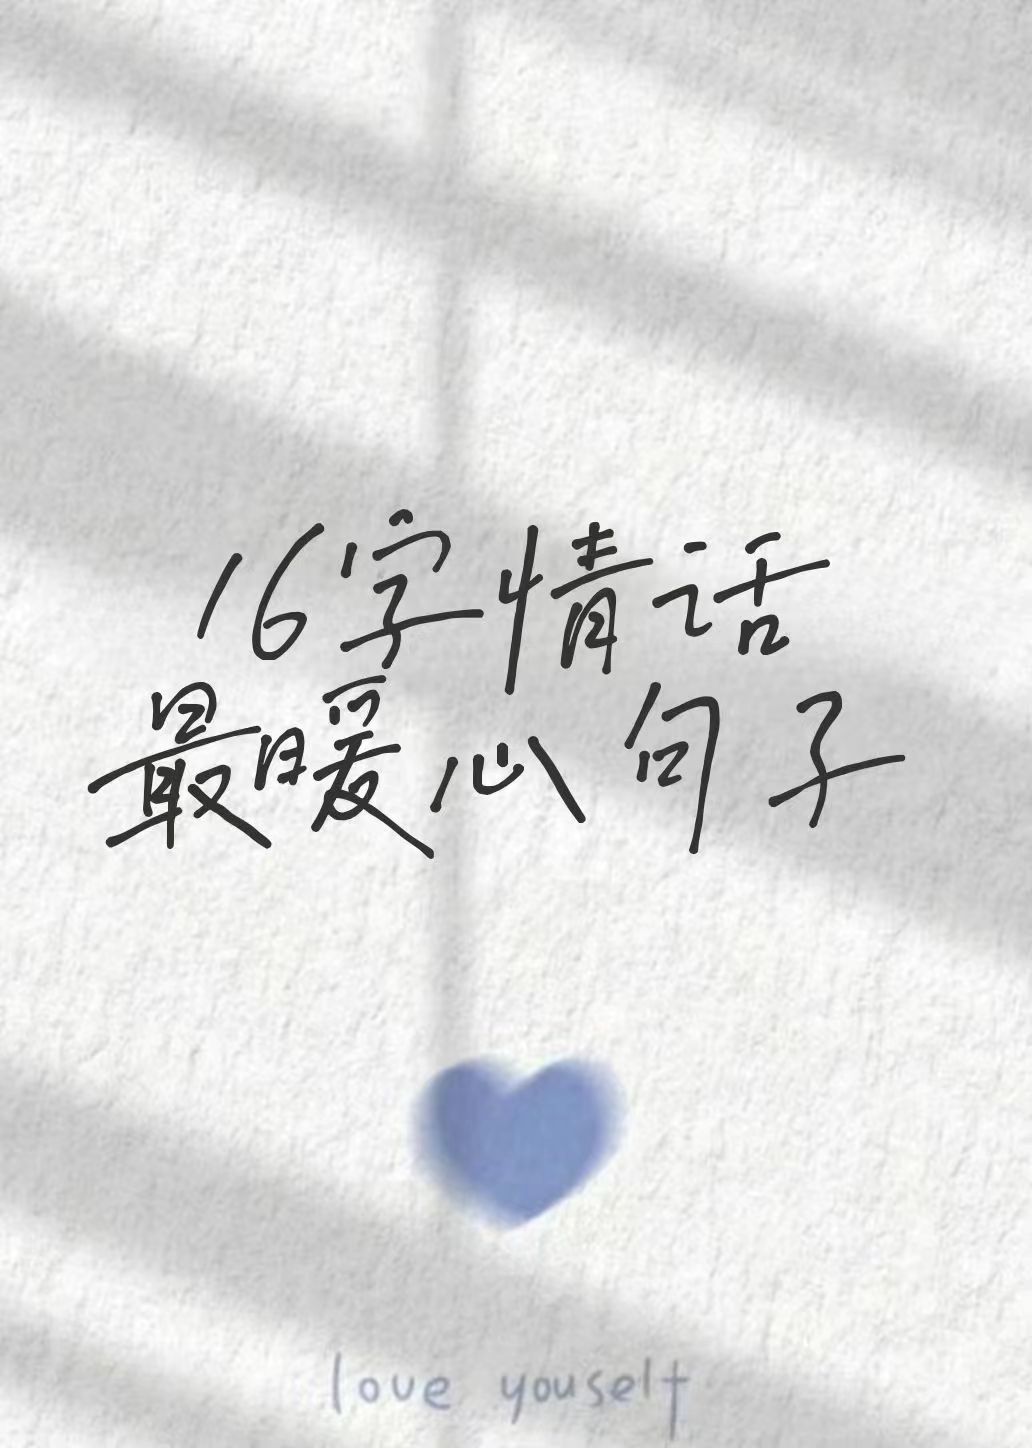 16字情话
最暖心句子
love youself